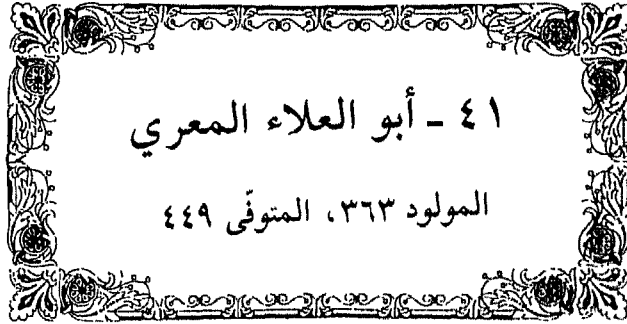 ٤١ ـ أبو العلاء المعري
المولود ٣٦٣، المتوفّى ٤٤٩